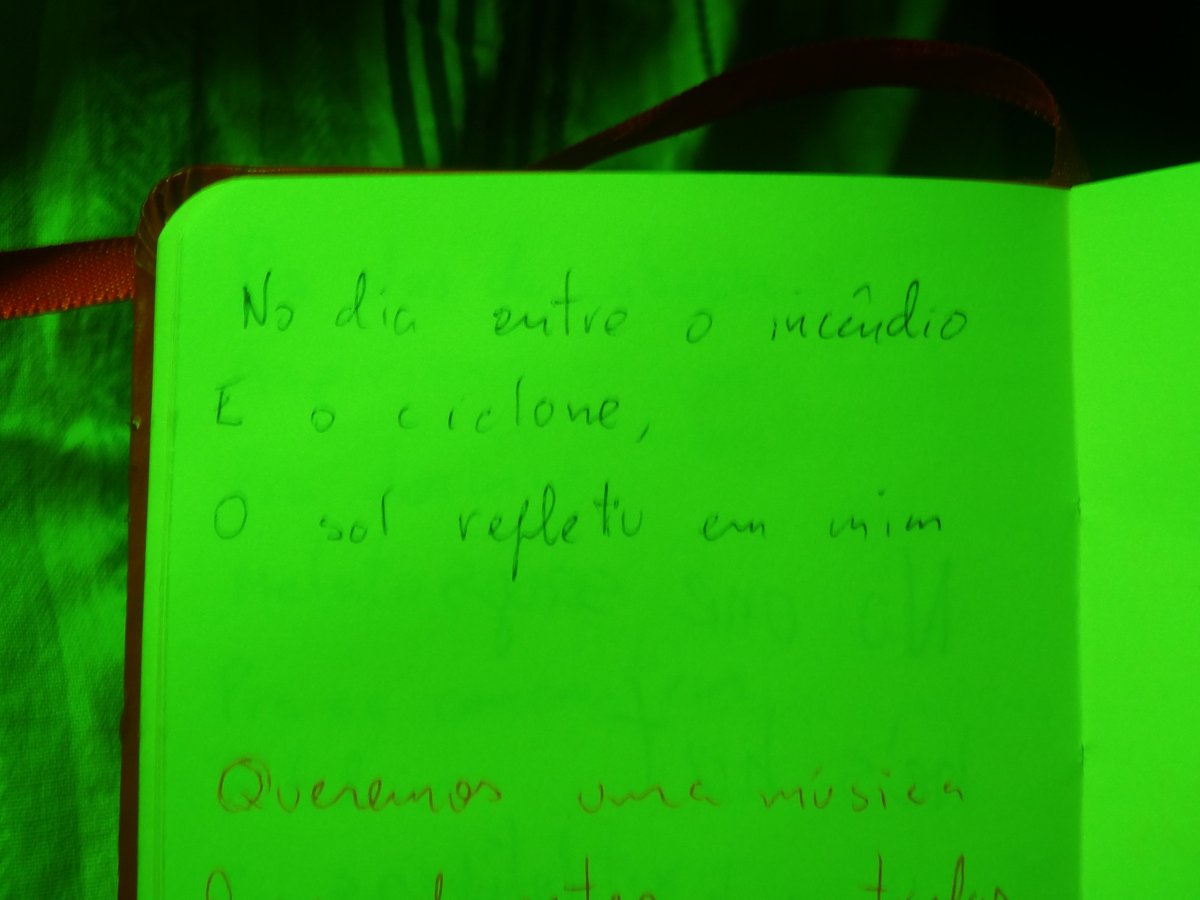 No dia entre o incêndio
E o ciclone,
O sol refletiu em mim
Queremos uma música